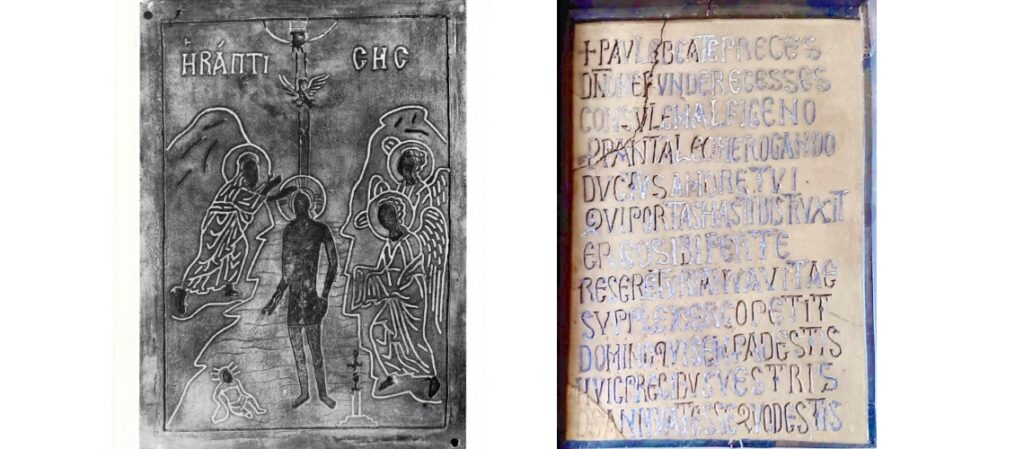 Η ΒΆΠΤΙ CΗC
+PAVLE BEATE PRECES
DÑO NE FVNDERE CESSES
CONSVLE MALFIGENO
P PANTALEONE ROGANDO
DVCTVS AMORE TVI
QVI PORTAS HAS TIBI STRVXIT
ERGO SIBI PER TE
RESERETVR IANVA VITAE
SVPPLEX ERGO PETIT
DOMINO QVI SEMP ADESTIS
HVIC PRECIBVS VESTRIS
ANNVAT ESSE QVOD ESTIS